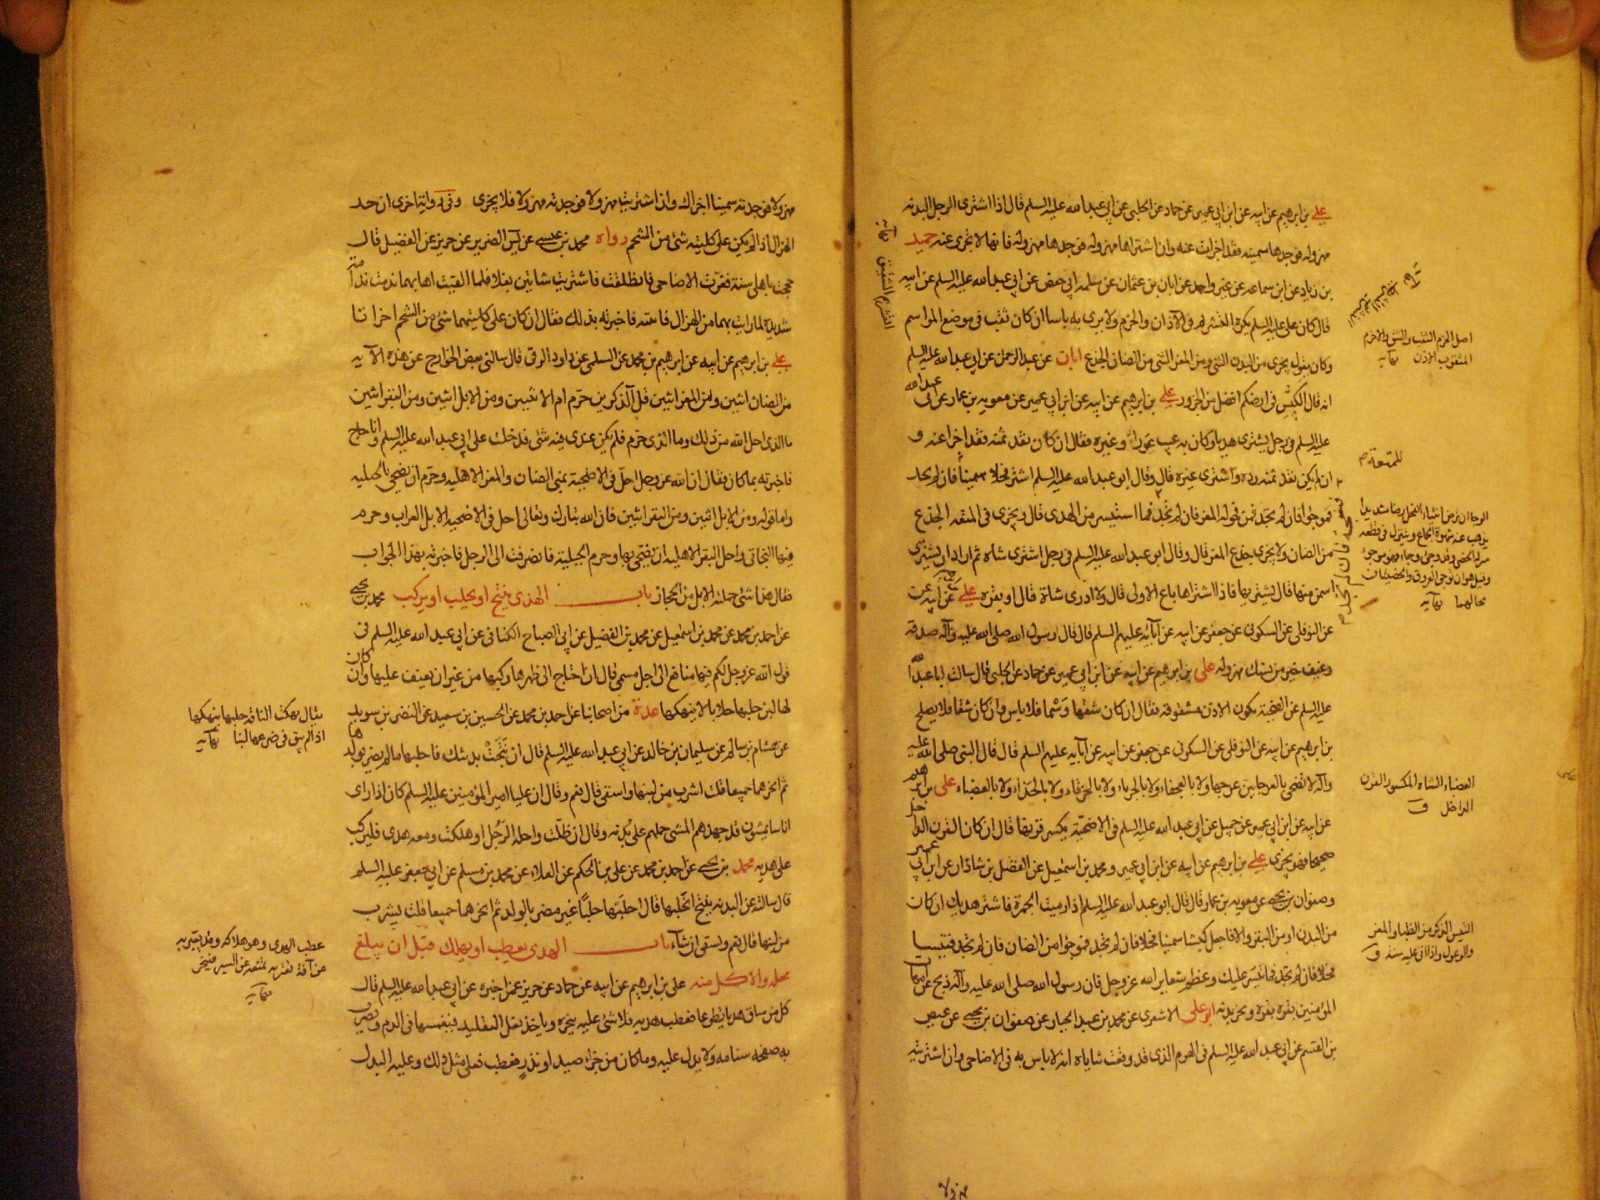 علي بن ابرهيم عن ابيه عن ابن ابي عمير عن حماد عن الحلبي عن ابي عبد الله عليه السلم قال اذا اشترى الرجل البدنه
مهزوله فوجدها سمينه فقد اجزات عنه وان اشتراها مهزوله فوجدها مهزوله فانها لا تجزى عنه حميد
بن زياد عن ابن سماعه عن غير واحد عن ابان بن عثمان عن سلمه ابي حفص عن ابي عبد الله عليه السلم عن ابيه
قال كان علي عليه السلم يكره التشريم في الآذان والخرم ولا يرى به باسا ان كان ثقب في موضع المواسم
وكان يقول يجزى من البدن الثنى ومن المعز الثنى ومن الضان الجذع ابان عن عبد الرحمن عن ابي عبد الله عليه السلم
انه قال الكبش في ارضكم افضل من الجزور علي بن ابرهيم عن ابيه عن ابن ابي عمير عن معويه بن عمار عن ابي عبد الله
عليه السلم في رجل يشترى هديا وكان به عيب عور او غيره فقال ان كان نقد ثمنه فقد اجزا عنه و
ان لم يكن نقد ثمنه رده واشترى غيره قال وقال ابو عبد الله عليه السلم اشتر فحلا سمينا للمتعة فان لم تجد
فموجوا فان لم تجد فمن فحولة المعز فان لم تجد فما استيسر من الهدى قال ويجزى في المتعه الجذع
من الضان ولا يجزى جذع المعز قال وقال ابو عبد الله عليه السلم في رجل اشترى شاة ثم اراد ان يشترى
اسمن منها قال يشتريها فاذا اشتراها باع الاولى قال ولا ادرى شاة قال او بقره علي عن ابيه عن
عن النوفلي عن السكوني عن جعفر عن ابيه عن آبائه عليهم السلم قال قال رسول الله صلى الله عليه وآله صدقه
رغيف خير من نسك مهزوله علي بن ابرهيم عن ابيه عن ابن ابي عمير عن حماد عن الحلبي قال سالت ابا عبد الله
عليه السلم عن الضحيه تكون الاذن مشقوقه فقال ان كان شقها وسما فلا باس وان كان شقا فلا يصلح
بن ابرهيم عن ابيه عن النوفلي عن السكوني عن جعفر عن ابيه عن آبائه عليهم السلم قال قال النبي صلى الله عليه
وآله لا تضحى بالعرجا بين عرجها ولا بالعجفاء ولا بالجرباء ولا بالخرقاء ولا بالحذاء ولا بالعضباء علي بن ابرهيم
عن ابيه عن ابن ابي عمير عن جميل عن ابي عبد الله عليه السلم في الاضحيه يكسر قرنها قال ان كان القرن الداخل
صحيحا فهو يجزى علي بن ابرهيم عن ابيه عن ابن ابي عمير ومحمد بن اسمعيل عن الفضل بن شاذان عن ابن ابي عمير
وصفوان بن يحيى عن معويه بن عمار قال قال ابو عبد الله عليه السلم اذا رميت الجمرة فاشتر هديك ان كان
من البدن او من البقر والا فاجعل كبشا سمينا فحلا فان لم تجد فموجوا من الضان فان لم تجد فتيسا
فحلا فان لم تجد فما تيسر عليك وعظم شعاير الله عز وجل فان رسول الله صلى الله عليه وآله ذبح عن امهات
المؤمنين بقره بقره ونحر بدنه ابو علي الاشعرى عن محمد بن عبد الجبار عن صفوان بن يحيى عن عيص
بن القسم عن ابي عبد الله عليه السلم في الهرم الذى قد وقعت ثناياه انه لا باس به في الاضاحي وان اشتريته
اصل الخرم الثقب والشق والاخرم
المثقوب الاذن نهايه
للمتعة
الوجا ان ترض انثياء الفحل رضا شديدا
يذهب عنه شهوة الجماع ويتنزل في قطعه
وقيل هو ان توجى العروق والخصيتان
بحالهما نهايه
العضباء الشاة المكسور القرن
الداخل ق
التيس الذكر من الظباء والمعز
والوعول واذا اتى عليه سنة ق
مهزولا
مهزولا فوجدته سمينا اجزاك وان اشتريته مهزولا فوجدته مهزولا فلا يجزى وفي رواية اخرى ان حد
الهزال اذا لم يكن على كليتيه شئ من الشحم رواه محمد بن عيسى عن يس الضرير عن حريز عن الفضيل قال
حججت باهلي سنة فعزت الاضاحي فانطلقت فاشتريت شاتين بغلا فلما القيت اهابهما ندمت ندامة
شديدة لما رايت بهما من الهزال فاتيته فاخبرته بذلك فقال ان كان على كليتيهما شئ من الشحم اجزاتا
علي بن ابرهيم عن ابيه عن ابرهيم بن محمد عن السلمي عن داود الرقي قال سالني بعض الخوارج عن هذه الآيه
من الضان اثنين ومن المعز اثنين قل آلذكرين حرم ام الانثيين ومن الابل اثنين ومن البقر اثنين
ما الذى احل الله من ذلك وما الذى حرم فلم يكن عندى فيه شئ فدخلت على ابي عبد الله عليه السلم وانا حاج
فاخبرته بما كان فقال ان الله عز وجل احل في الاضحية بمنى الضان والمعز الاهليه وحرم ان يضحى بالجبليه
واما قوله ومن الابل اثنين ومن البقر اثنين فان الله تبارك وتعالى احل في الاضحيه الابل العراب وحرم
فيها البخاتي واحل البقر الاهليه ان يضحى بها وحرم الجبليه فانصرفت الى الرجل فاخبرته بهذا الجواب
فقال هذا شئ حملته الابل من الحجاز باب الهدى ينتج او يحلب او يركب محمد بن يحيى
عن احمد بن محمد عن محمد بن اسمعيل عن محمد بن الفضيل عن ابي الصباح الكناني عن ابي عبد الله عليه السلم في
قول الله عز وجل لكم فيها منافع الى اجل مسمى قال ان احتاج الى ظهرها ركبها من غير ان يعنف عليها وان كان
لها لبن حلبها حلابا لا ينهكها عدة من اصحابنا عن احمد بن محمد عن الحسين بن سعيد عن النضر بن سويد
عن هشام بن سالم عن سليمان بن خالد عن ابي عبد الله عليه السلم قال ان نتجت بدنتك فاحلبها ما لم يضر بولدها
ثم انحرهما جميعا قلت اشرب من لبنها واسقي قال نعم وقال ان عليا امير المؤمنين عليه السلم كان اذا راى
اناسا يمشون قد جهدهم المشى حملهم على بدنه وقال ان ضلت راحلة الرجل او هلكت ومعه هدى فليركب
على هديه محمد بن يحيى عن احمد بن محمد عن علي بن الحكم عن العلاء عن محمد بن مسلم عن ابي جعفر عليه السلم
قال سالته عن البدنه ينتج انحلبها قال احلبها حلبا غير مضر بالولد ثم انحرهما جميعا قلت يشرب
من لبنها قال نعم ويسقى ان شاء باب الهدى يعطب او يهلك قبل ان يبلغ
محله والاكل منه علي بن ابرهيم عن ابيه عن حماد عن حريز عمن اخبره عن ابي عبد الله عليه السلم قال
كل من ساق هديا تطوعا فعطب هديه فلا شئ عليه ينحره وياخذ نعل التقليد فيغمسها في الدم ويضرب
به صفحه سنامه ولا بدل عليه وما كان من جزاء صيد او نذر فعطب فعل مثل ذلك وعليه البدل
يقال نهكت الناقه حلبا انهكها
اذا لم يبق في ضرعها لبنا نهايه
عطب الهدى وهو هلاكه وقد يعبر به
عن آفة تعتريه تمنعه عن السير فينحر
نهايه